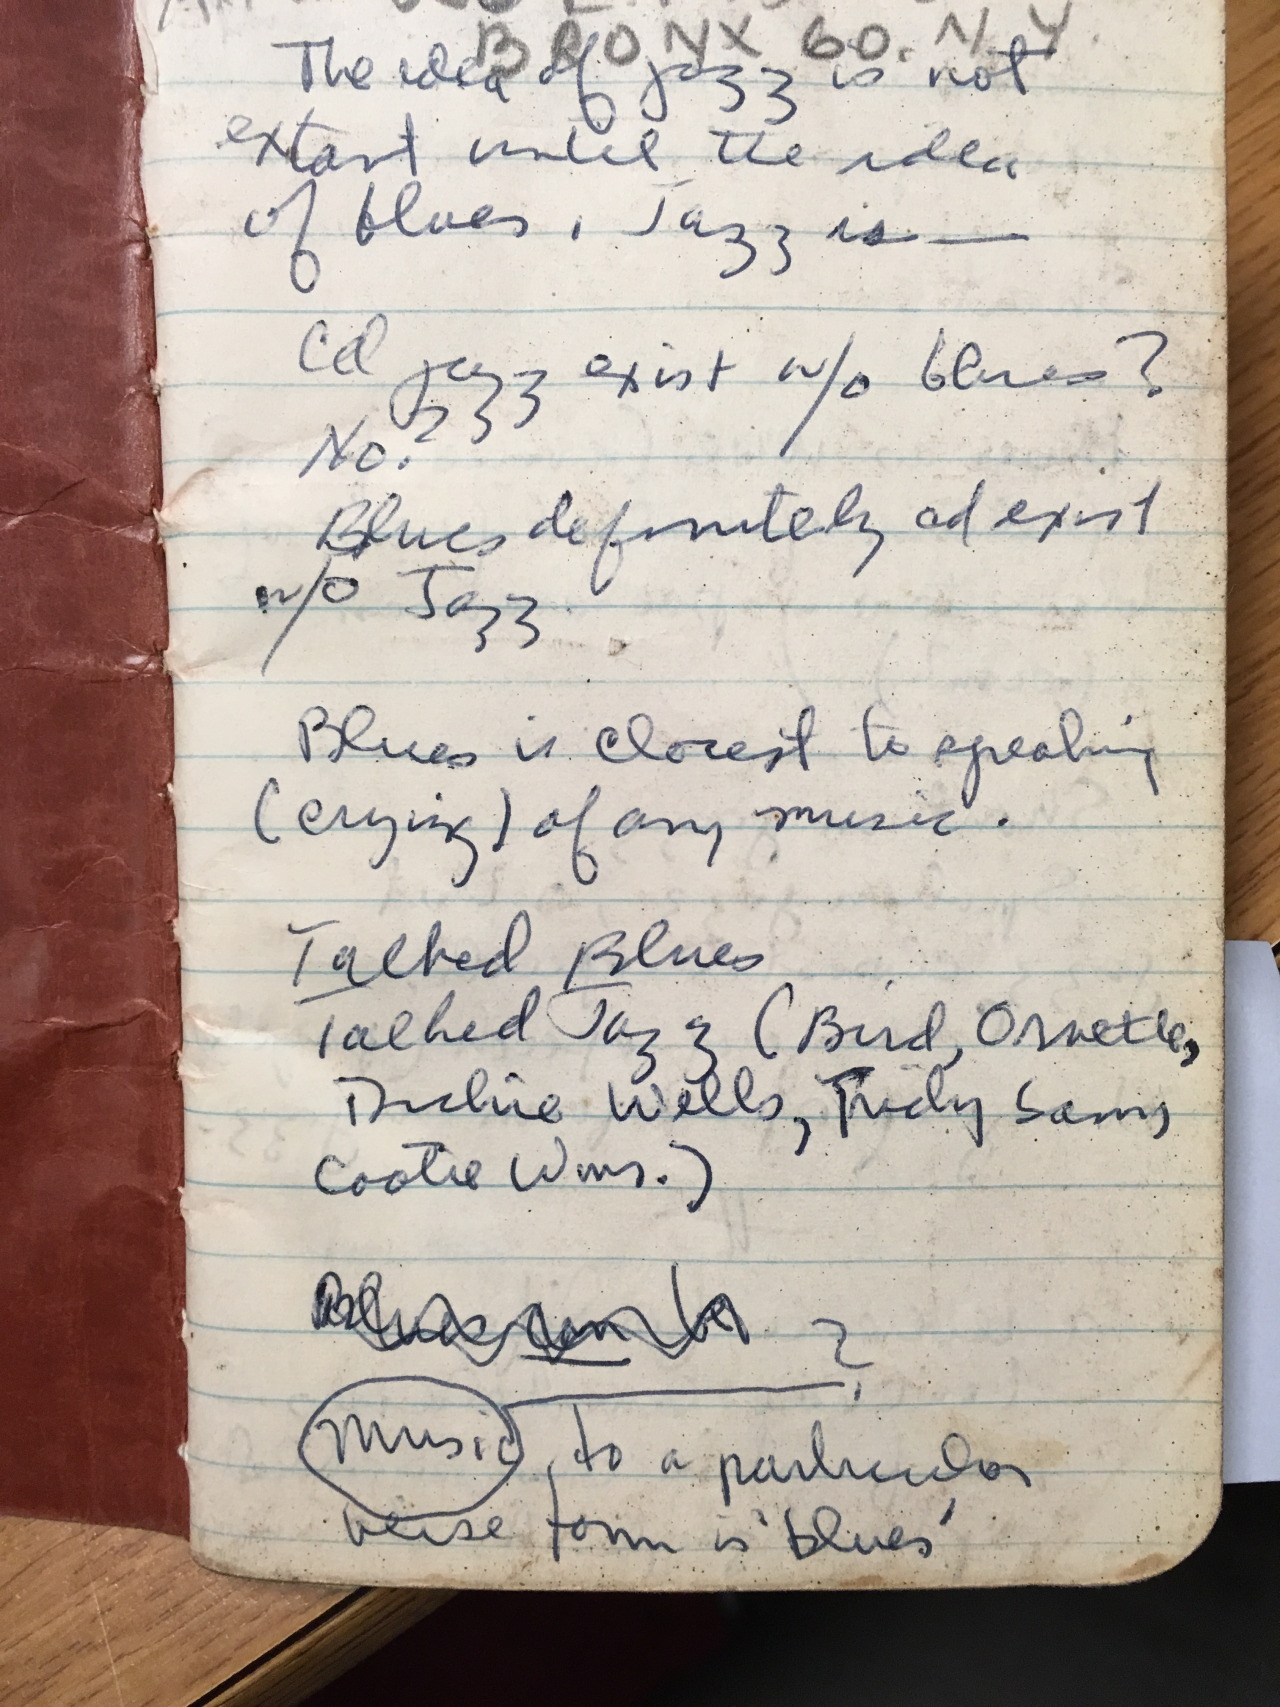 BRONX 60. N.Y.
The idea of jazz is not
extant until the idea
of blues. Jazz is —
Cd jazz exist w/o blues?
No?
Blues definitely cd exist
w/o Jazz.
Blues is closest to speaking
(crying) of any music.
Talked Blues
Talked Jazz (Bird, Ornette,
Dickie Wells, Tricky Sam,
Cootie Wms.)
Blues can be
?
Music, to a particular
verse form is 'blues'